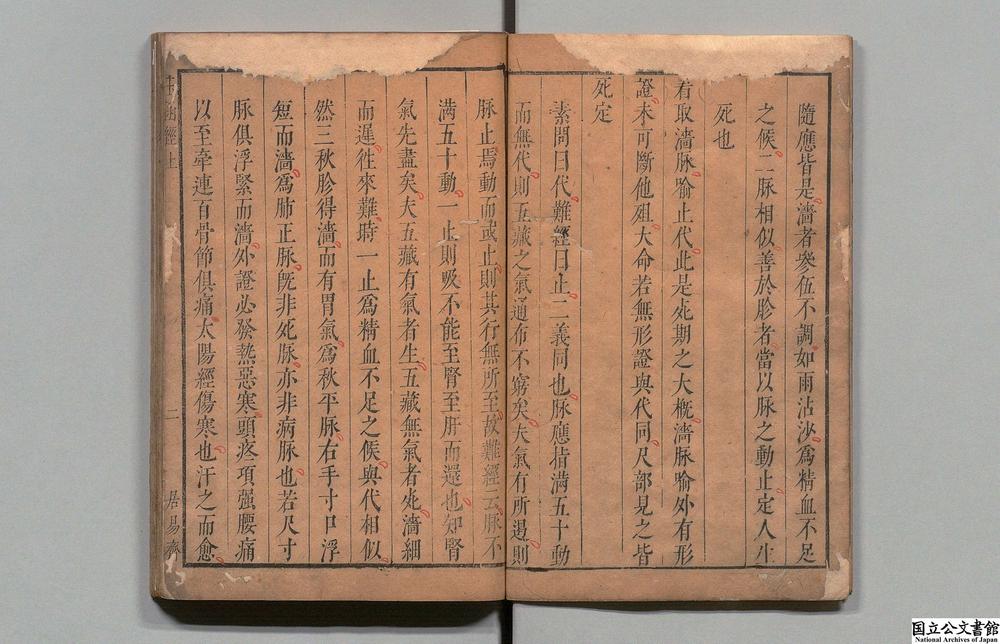 隨應皆是濇者參伍不調如雨沾沙爲精血不足
之候二脉相似善於胗者當以脉之動止定人生
死也
看取濇脉喻止代此是死期之大概濇脉喻外有形
證未可斷他殂大命若無形證與代同尺部見之皆
死定
素問曰代難經曰止二義同也脉應指滿五十動
而無代則五藏之氣通布不窮矣夫氣有所遏則
脉止焉動而或止則其行無所至故難經云脉不
滿五十動一止則吸不能至腎至肝而還也知腎
氣先盡矣夫五藏有氣者生五藏無氣者死濇細
而遲徃來難時一止爲精血不足之候與代相似
然三秋胗得濇而有胃氣爲秋平脉右手寸口浮
短而濇爲肺正脉旣非死脉亦非病脉也若尺寸
脉俱浮緊而濇外證必發熱惡寒頭疼項强腰痛
以至牽連百骨節俱痛太陽經傷寒也汗之而愈
經上
二
居易齋
国立公文書館
National Archives of Japan